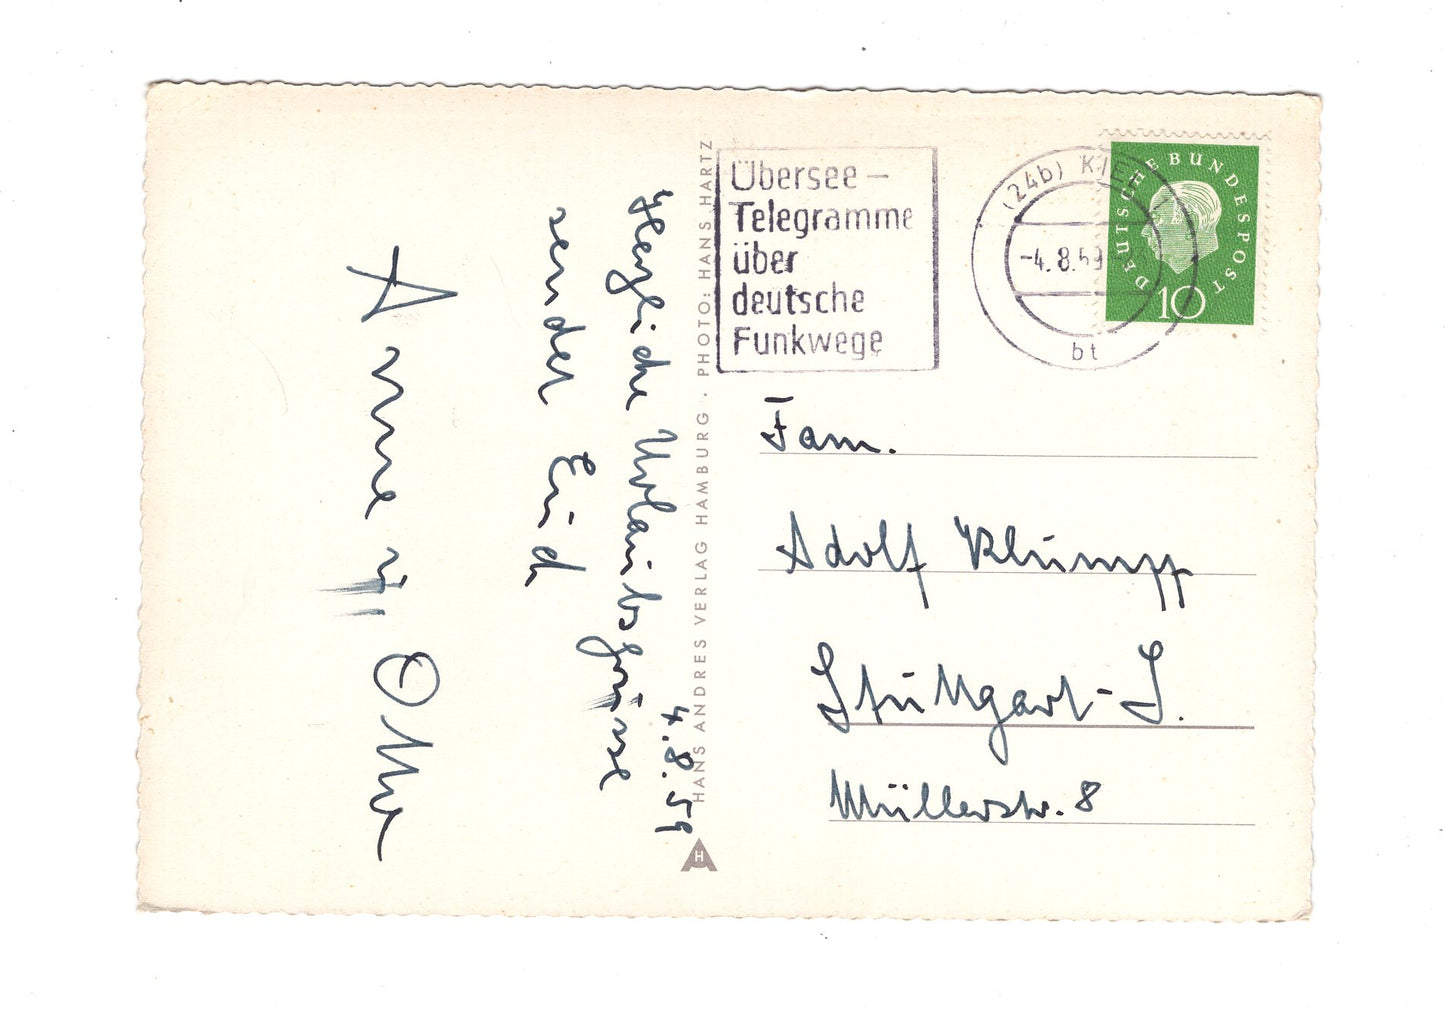 4.8.59
Herzliche Urlaubsgrüsse
sendet Euch
Anne u.
HANS ANDRES VERLAG HAMBURG · PHOTO: HANS HARTZ
H
Übersee –
Telegramme
über
deutsche
Funkwege
(24b) KIEL
-4.8.59
bt
DEUTSCHE BUNDESPOST
10
Fam.
Adolf Klumpp
Stuttgart-S.
Müllerstr. 8